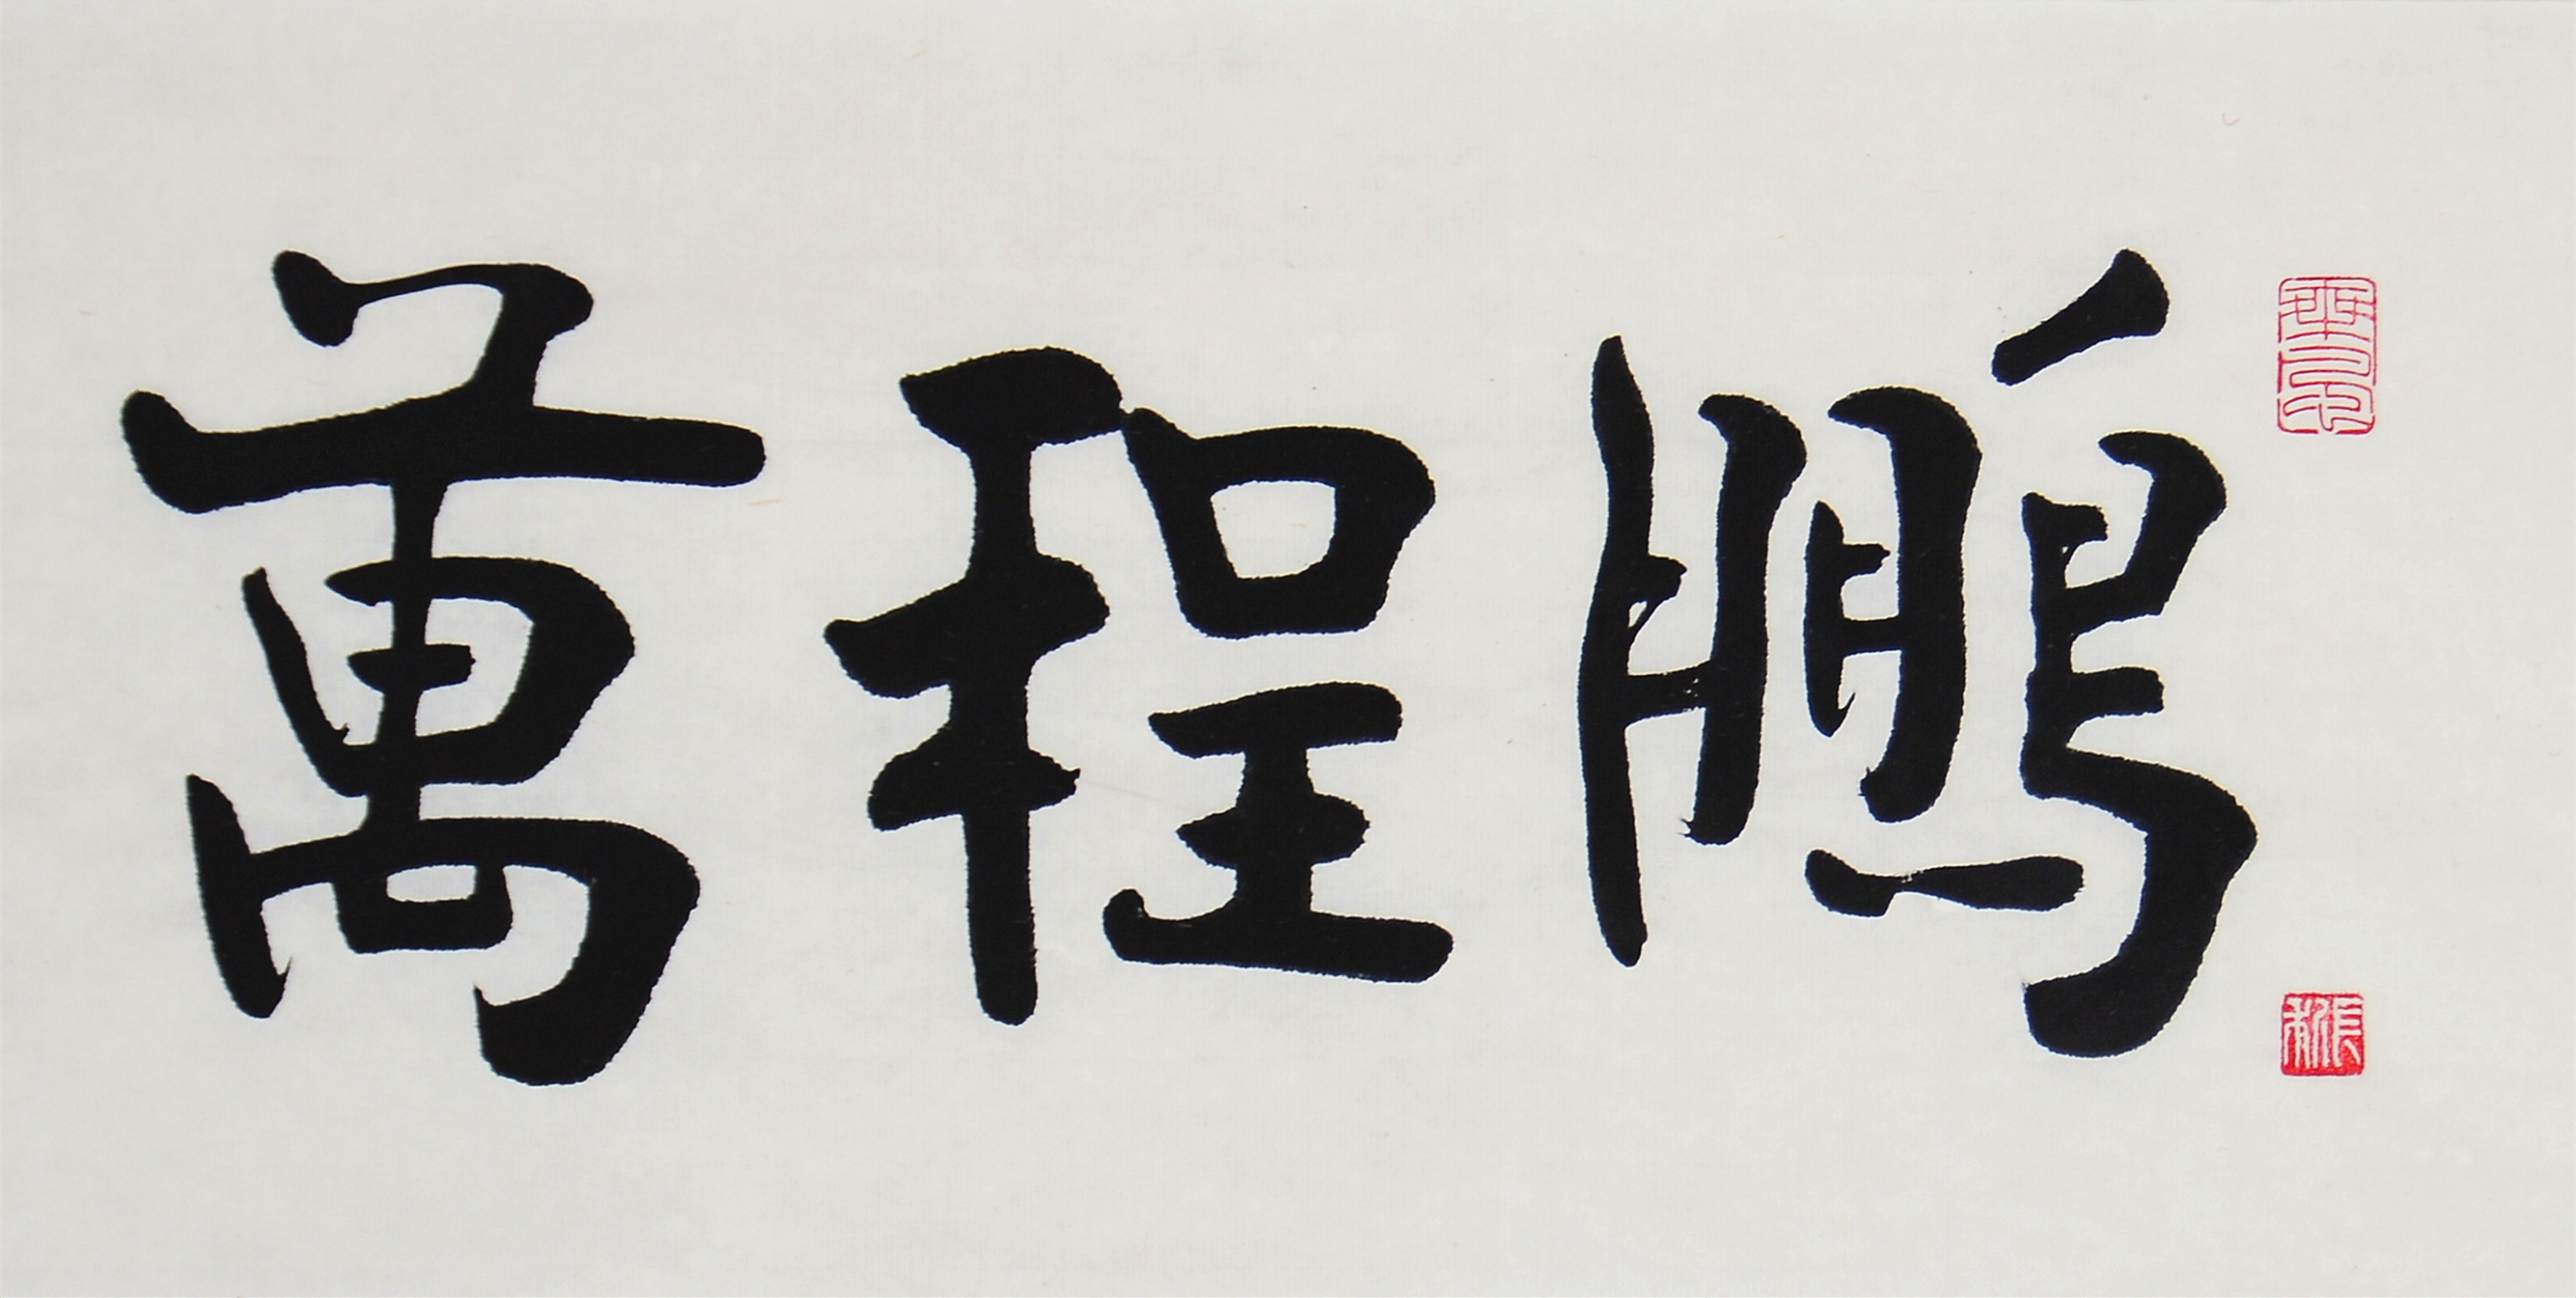 鵬程萬